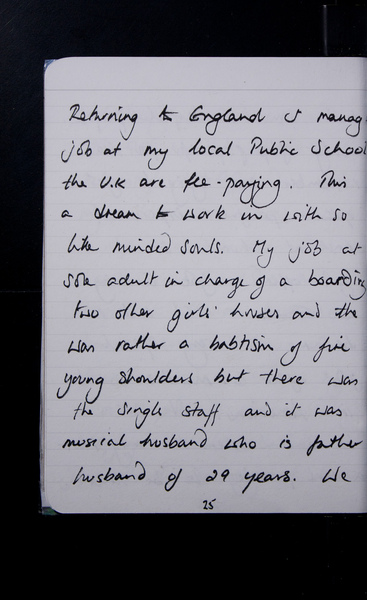 Returning to England I manag
job at my local Public School
the U.K are fee-paying. This
a dream to work in with so
like minded souls. My job at
sole adult in charge of a boarding
two other girls' houses and the
was rather a babtism of fire
young shoulders but there was
the single staff and it was
musical husband who is father
husband of 29 years. We
25